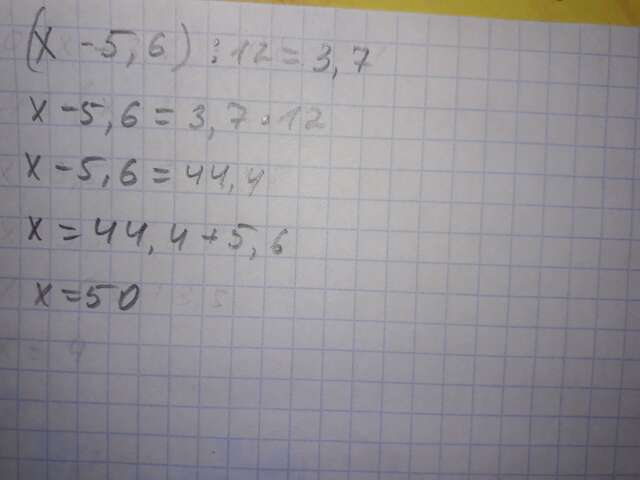 (x - 5,6) : 12 = 3,7
x - 5,6 = 3,7 · 12
x - 5,6 = 44,4
x = 44,4 + 5,6
x = 50